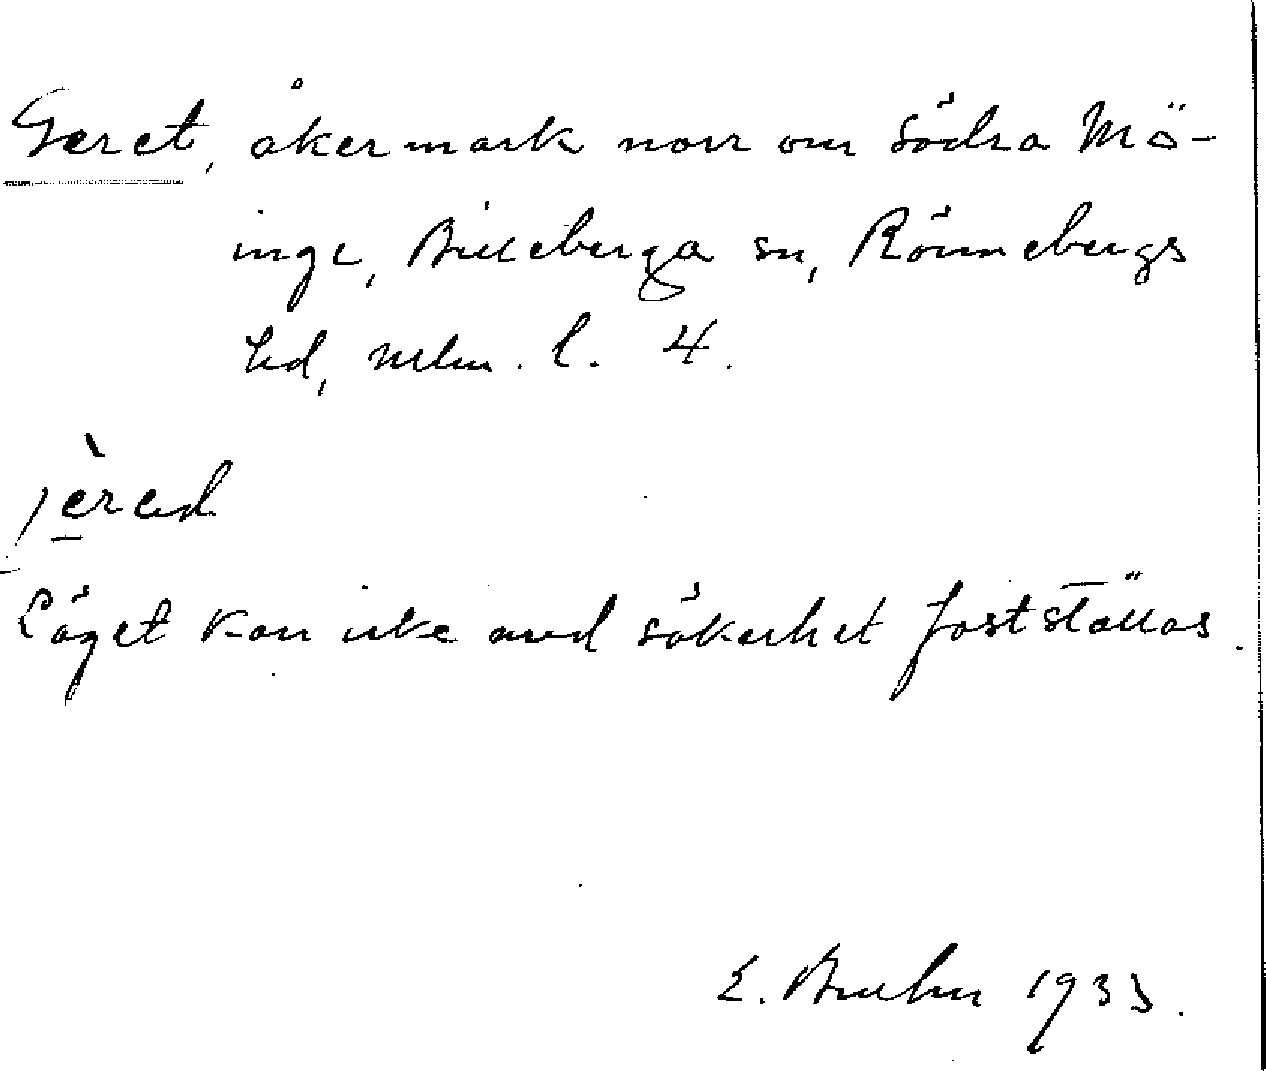 Geret, åkermark norr om Södra Mö-
inge, Billeberga sn, Rönnebergs
hd, Mlm. l. 4.
jèred
Läget kan icke med säkerhet fastställas.
E. Bruhn 1933.